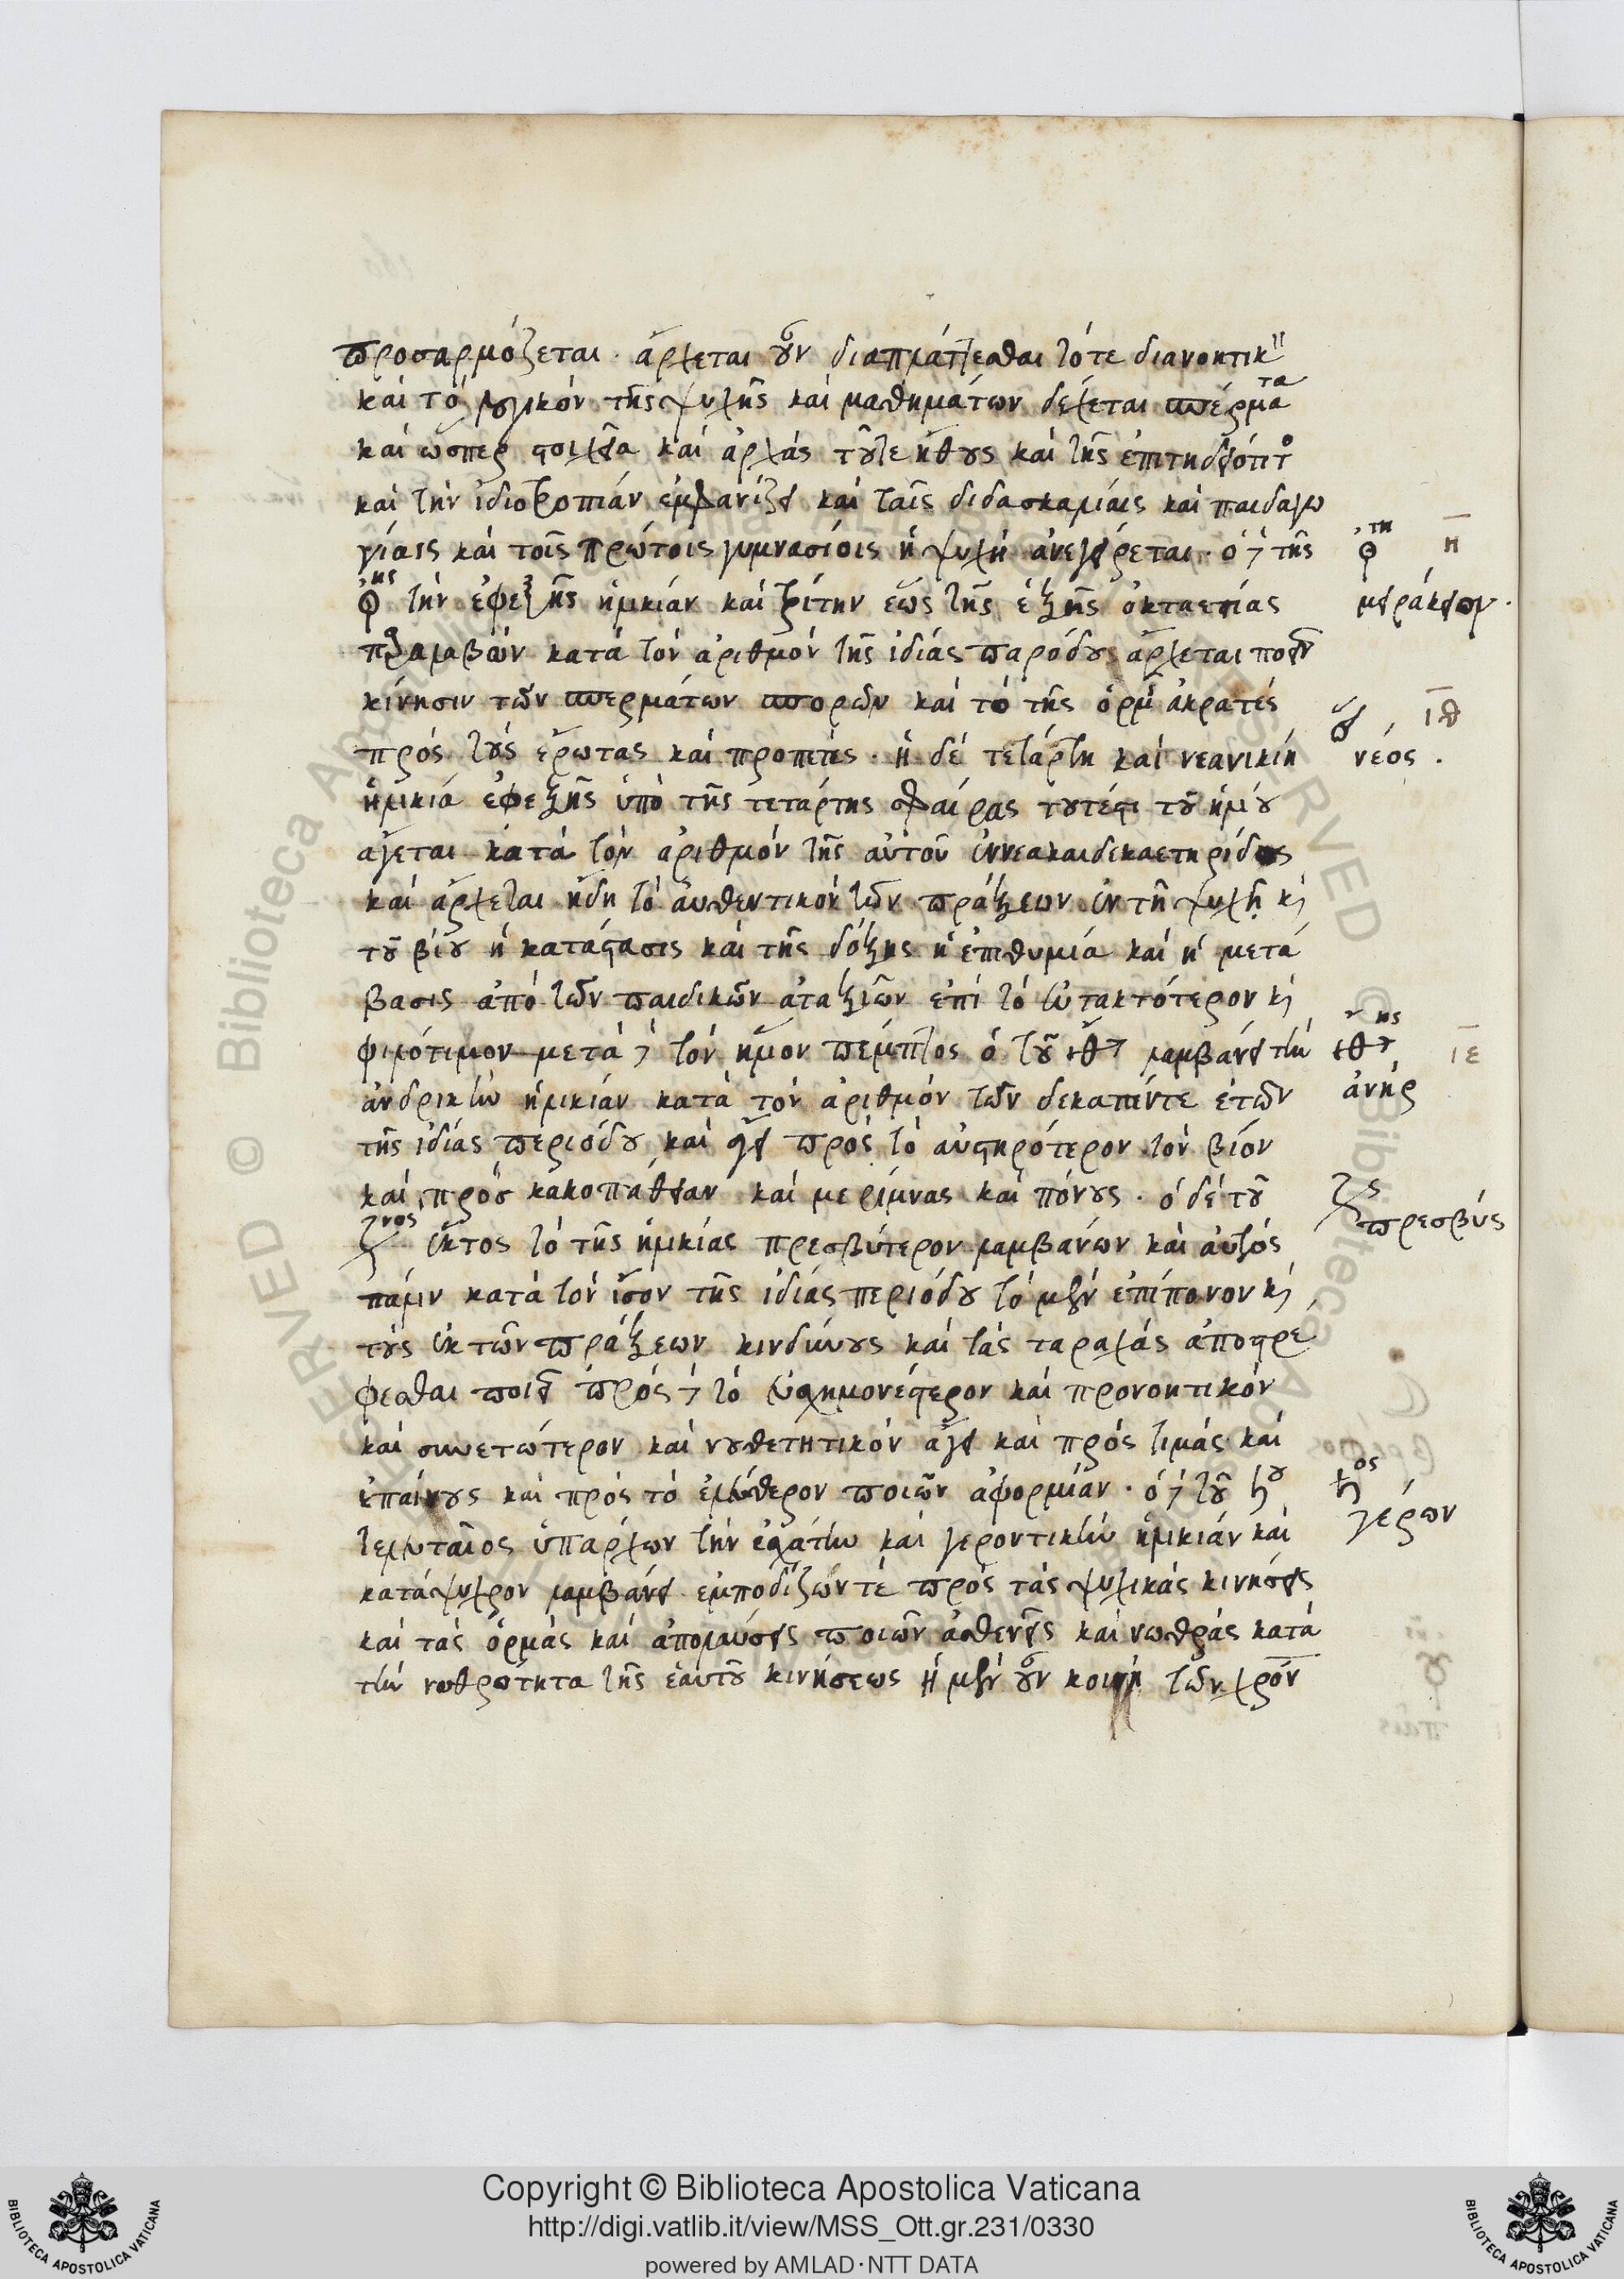 προσαρμόζεται. ἄρχεται οὖν διαπλάττεσθαι τότε διανοητικ
καὶ τὸ λογικόν τῆς ψυχῆς καὶ μαθημάτων δέχεται σπέρματα
καὶ ὥσπερ στοιχεῖα καὶ ἀρχάς τοῦτε ἤθους καὶ τῆς ἐπιτηδειότητο
καὶ τὴν ἰδιοτροπίαν ἐμφανίζει καὶ ταῖς διδασκαλίαις καὶ παιδαγω
γίαις καὶ τοῖς πρώτοις γυμνασίοις ἡ ψυχὴ ἀνεγείρεται. ὁ δὲ τῆς
♀ης τὴν ἐφεξῆς ἡλικίαν καὶ τρίτην ἕως τῆς ἑξῆς ὀκταετίας
παραλαβὼν κατὰ τὸν ἀριθμόν τῆς ἰδίας παρόδου ἄρχεται ποιεῖν
κίνησιν τῶν σπερμάτων σπορῶν καὶ τὸ τῆς ὁρμῆς ἀκρατές
πρός τοὺς ἔρωτας καὶ προπετές. ἡ δὲ τετάρτη καὶ νεανική
ἡλικία ἐφεξῆς ὑπὸ τῆς τετάρτης σφαίρας τουτέστι τοῦ ἡλίου
ἄγεται κατὰ τὸν ἀριθμόν τῆς αὐτοῦ ἐννεακαιδεκαετηρίδος
καὶ ἄρχεται ἤδη τὸ αὐθεντικόν τῶν πράξεων ἐν τῇ ψυχῇ κὶ
τοῦ βίου ἡ κατάστασις καὶ τῆς δόξης ἡ ἐπιθυμία καὶ ἡ μετά
βασις ἀπὸ τῶν παιδικῶν ἀταξιῶν ἐπὶ τὸ εὐτακτότερον κὶ
φιλότιμον μετὰ δὲ τὸν ἥλιον πέμπτος ὁ τοῦ ἄρεος λαμβάνει τὴν
ἀνδρικὴν ἡλικίαν κατὰ τὸν ἀριθμόν τῶν δεκαπέντε ἐτῶν
τῆς ἰδίας περιόδου καὶ ἄγει πρὸς τὸ αὐστηρότερον τὸν βίον
καὶ πρὸς κακοπάθειαν καὶ μερίμνας καὶ πόνους. ὁ δὲ τοῦ
♃νος ἕκτος τὸ τῆς ἡλικίας πρεσβύτερον λαμβάνων καὶ αὐτός
πάλιν κατὰ τὸν ἴσον τῆς ἰδίας περιόδου τὸ μὲν ἐπίπονον κὶ
τοὺς ἐκ τῶν πράξεων κινδύνους καὶ τὰς ταραχάς ἀποστρέ
φεσθαι ποιεῖ πρός δὲ τὸ εὐσχημονέστερον καὶ προνοητικόν
καὶ συνετώτερον καὶ νουθετητικόν ἄγει καὶ πρός τιμάς καὶ
ἐπαίνους καὶ πρὸς τὸ ἐλεύθερον ποιῶν ἀφορμίαν. ὁ δὲ τοῦ ♄ου
τελευταῖος ὑπάρχων τὴν ἐσχάτην καὶ γεροντικὴν ἡλικίαν καὶ
κατάψυχρον λαμβάνει ἐμποδίζων τὲ πρὸς τὰς ψυχικάς κινήσεις
καὶ τὰς ὁρμάς καὶ ἀπολαύσεις ποιῶν ἀσθενεῖς καὶ νωθράς κατὰ
τὴν νωθρότητα τῆς ἑαυτοῦ κινήσεως ἡ μὲν οὖν κοινὴ τῶν χρόν
♀τη η̅
μειράκιον.
ι̅θ
νέος.
ι̅ε
ἀνήρ
♃ς
πρεσβύς
♄ος
γέρων
© Biblioteca Apostolica Vaticana ALL RIGHTS RESERVED
Copyright © Biblioteca Apostolica Vaticana
http://digi.vatlib.it/view/MSS_Ott.gr.231/0330
powered by AMLAD·NTT DATA
BIBLIOTECA APOSTOLICA VATICANA
BIBLIOTECA APOSTOLICA VATICANA